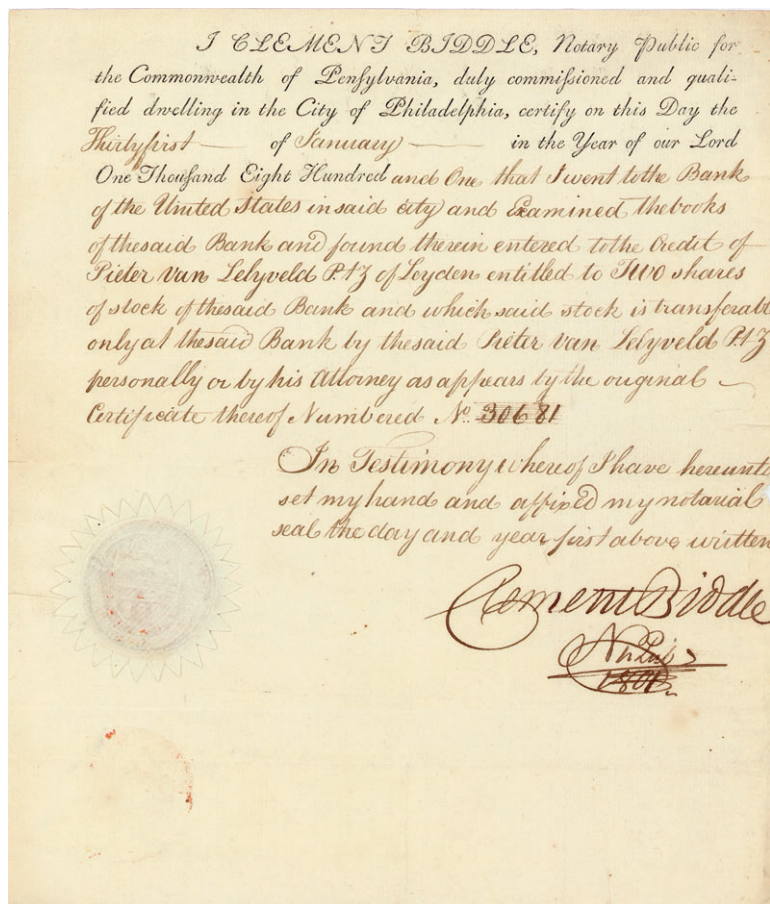 I CLEMENT BIDDLE, Notary Public for
the Commonwealth of Pensylvania, duly commissioned and quali-
fied dwelling in the City of Philadelphia, certify on this Day the
Thirtyfirst of January in the Year of our Lord
One Thousand Eight Hundred and One that I went to the Bank
of the United States in said city and Examined the books
of the said Bank and found therein entered to the Credit of
Pieter van Lelyveld P.tZ of Leyden entitled to Two shares
of stock of the said Bank and which said stock is transferabl
only at the said Bank by the said Pieter van Lelyveld P.tZ
personally or by his Attorney as appears by the original
Certificate thereof Numbered No. 30681
In Testimony whereof I have hereunto
set my hand and affixed my notarial
seal the day and year first above written
Clement Biddle
Not Pub
1801